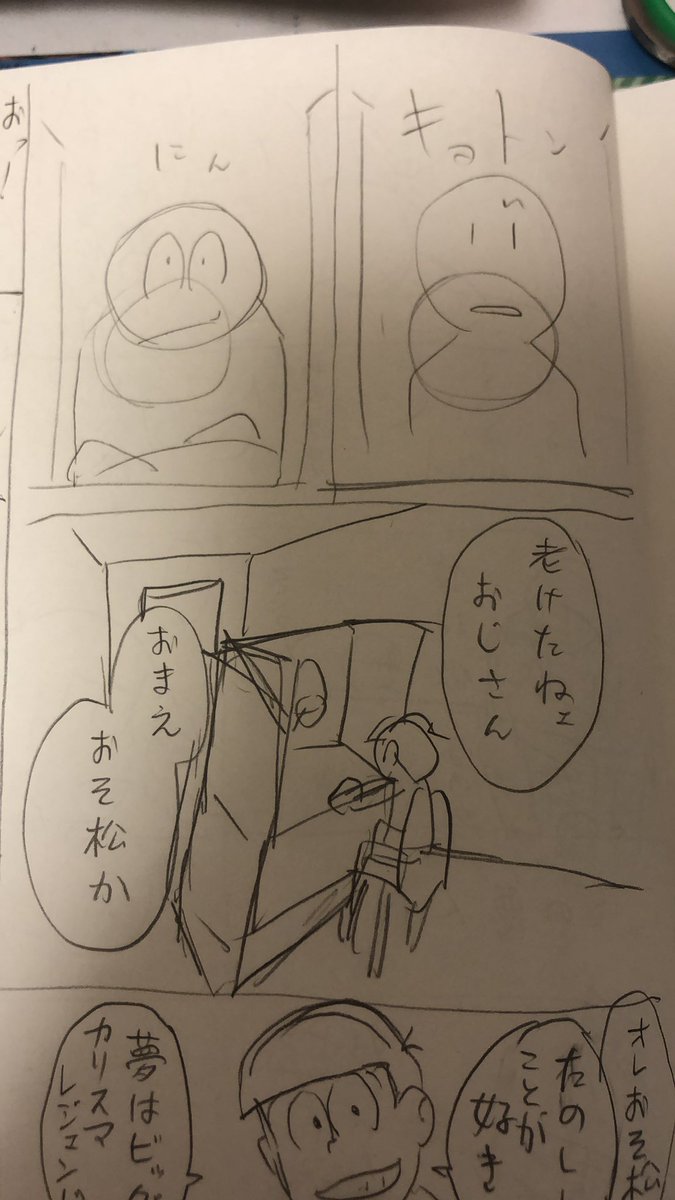 キョトン
にん
おっ!
老けたねェ
おじさん
おまえ
おそ松か
オレおそ松
ことが
好き
夢はビッグ
カリスマ
レジェンド